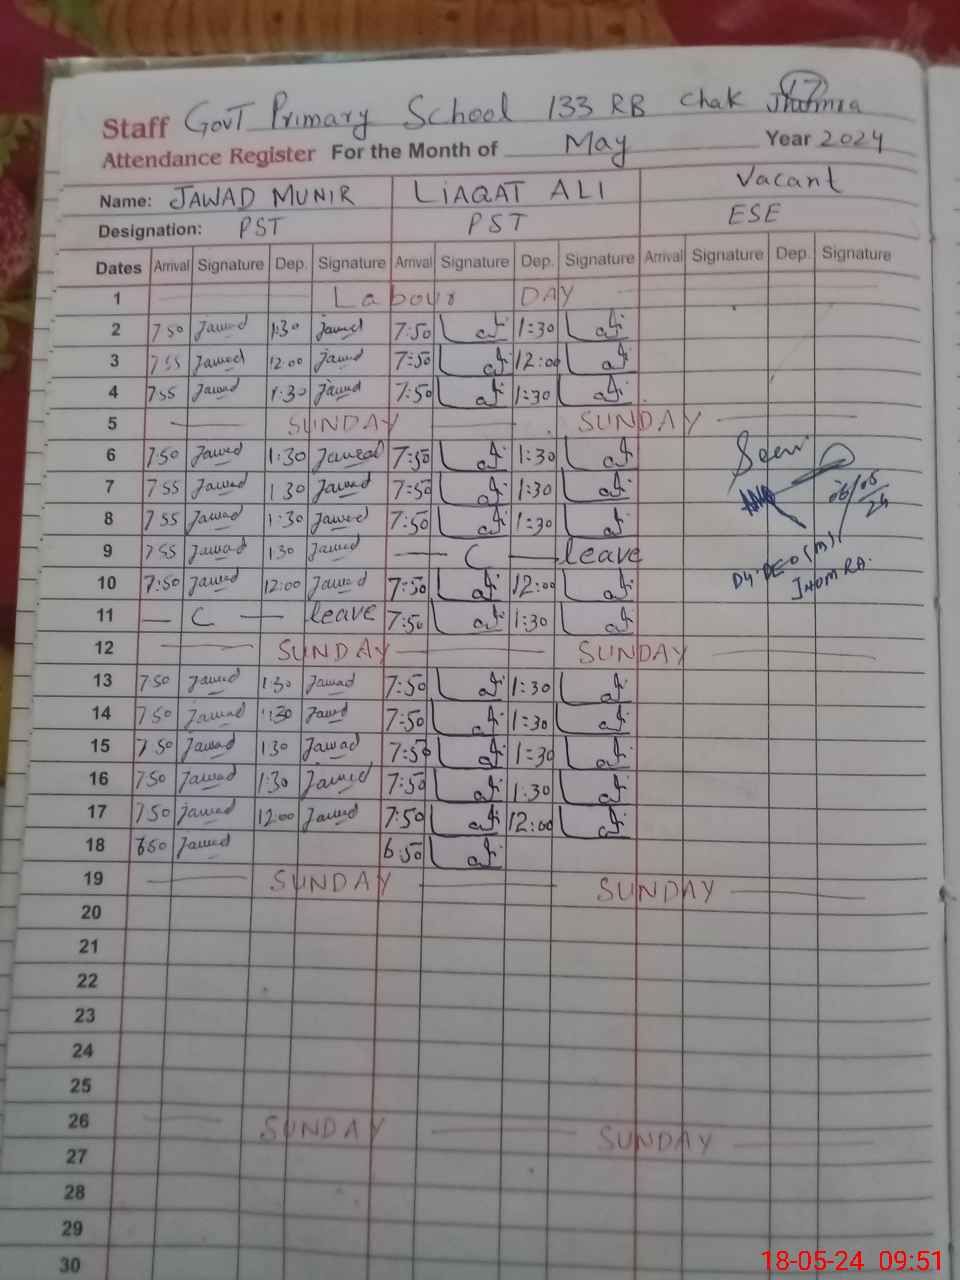 17
Staff Govt Primary School 133 RB Chak Jhumra
Attendance Register For the Month of May Year 2024
Name: JAWAD MUNIR LIAQAT ALI Vacant
Designation: PST PST ESE
Dates Arrival Signature Dep. Signature Arrival Signature Dep. Signature Arrival Signature Dep. Signature
1 Labour DAY
2 750 Jawad 1:30 Jawad 7:50 1:30
3 755 Jawad 12:00 Jawad 7:50 12:00
4 755 Jawad 1:30 Jawad 7:50 1:30
5 SUNDAY SUNDAY
6 7:50 Jawad 1:30 Jawad 7:50 1:30
7 755 Jawad 130 Jawad 7:50 1:30
8 755 Jawad 1:30 Jawad 7:50 1:30
9 755 Jawad 1:30 Jawad C leave
10 7:50 Jawad 12:00 Jawad 7:50 12:00
11 C leave 7:50 1:30
12 SUNDAY SUNDAY
13 750 Jawad 1:30 Jawad 7:50 1:30
14 750 Jawad 1:30 Jawad 7:50 1:30
15 750 Jawad 130 Jawad 7:50 1:30
16 750 Jawad 1:30 Jawad 7:50 1:30
17 750 Jawad 12:00 Jawad 7:50 12:00
18 650 Jawad 6:50
19 SUNDAY SUNDAY
20
21
22
23
24
25
26 SUNDAY SUNDAY
27
28
29
30
Seen
06/05/24
Dy.DEO(M)
JHUMRA.
18-05-24 09:51